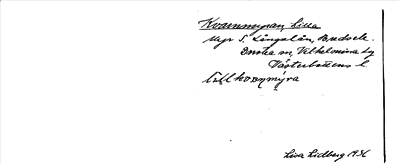 Kvarnmyran, Lilla
Myr S. Långselån, Bredsele.
Dorotea sn, Vilhelmina tg
Västerbottens l.
lill kvanmýra
Lisa Lidberg 1936